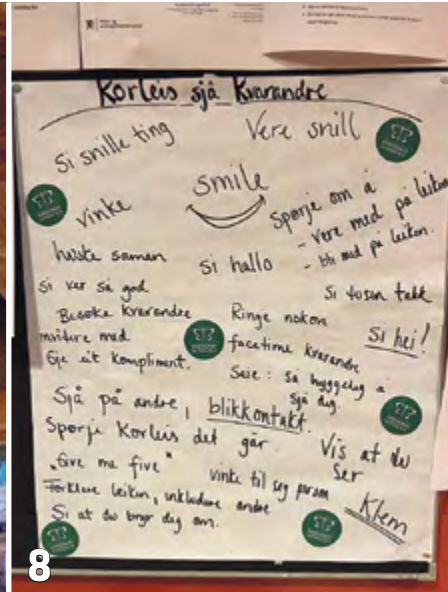 Korleis sjå kvarandre
Si snille ting
Vere snill
smile
vinke
Spørje om å
- vere med på leiken
- bli med på leiken.
huske saman
si hallo
si ver så god
Si tusen takk
Besøke kvarandre
Ringe nokon
Si hei!
invitere med
facetime kvarandre
Gje eit kompliment.
Seie: Så hyggeleg å
sjå deg.
Sjå på andre, blikkontakt.
Spørje korleis det går.
Vis at du
ser
"Give me five"
vinke til seg person
Forklare leiken, inkludere andre
Klem
Si at du bryr deg om.
8